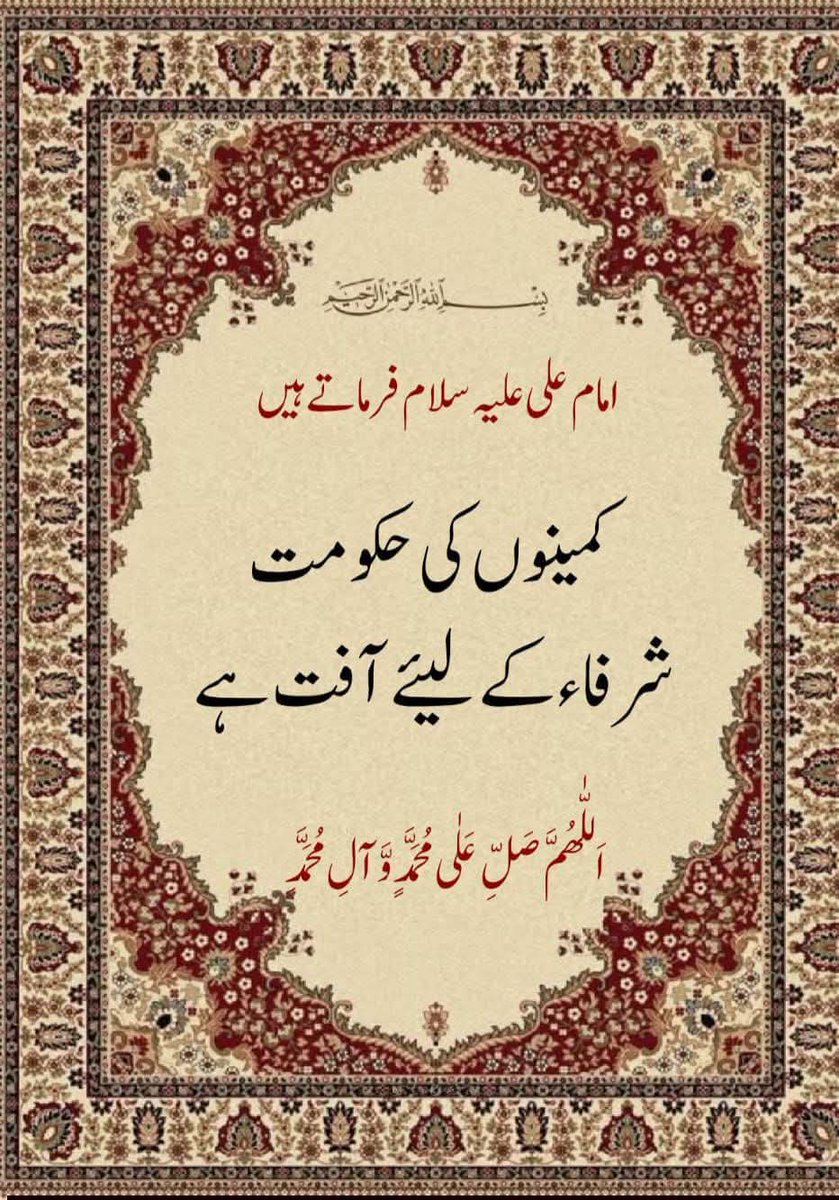 بِسْــــمِ اللهِ الرَّحْمٰنِ الرَّحِيْمِ
امام علی علیہ سلام فرماتے ہیں
کمینوں کی حکومت
شرفاء کے لیئے آفت ہے
اَللّٰھُمَّ صَلِّ عَلٰی مُحَمَّدٍ وَّ آلِ مُحَمَّدٍ